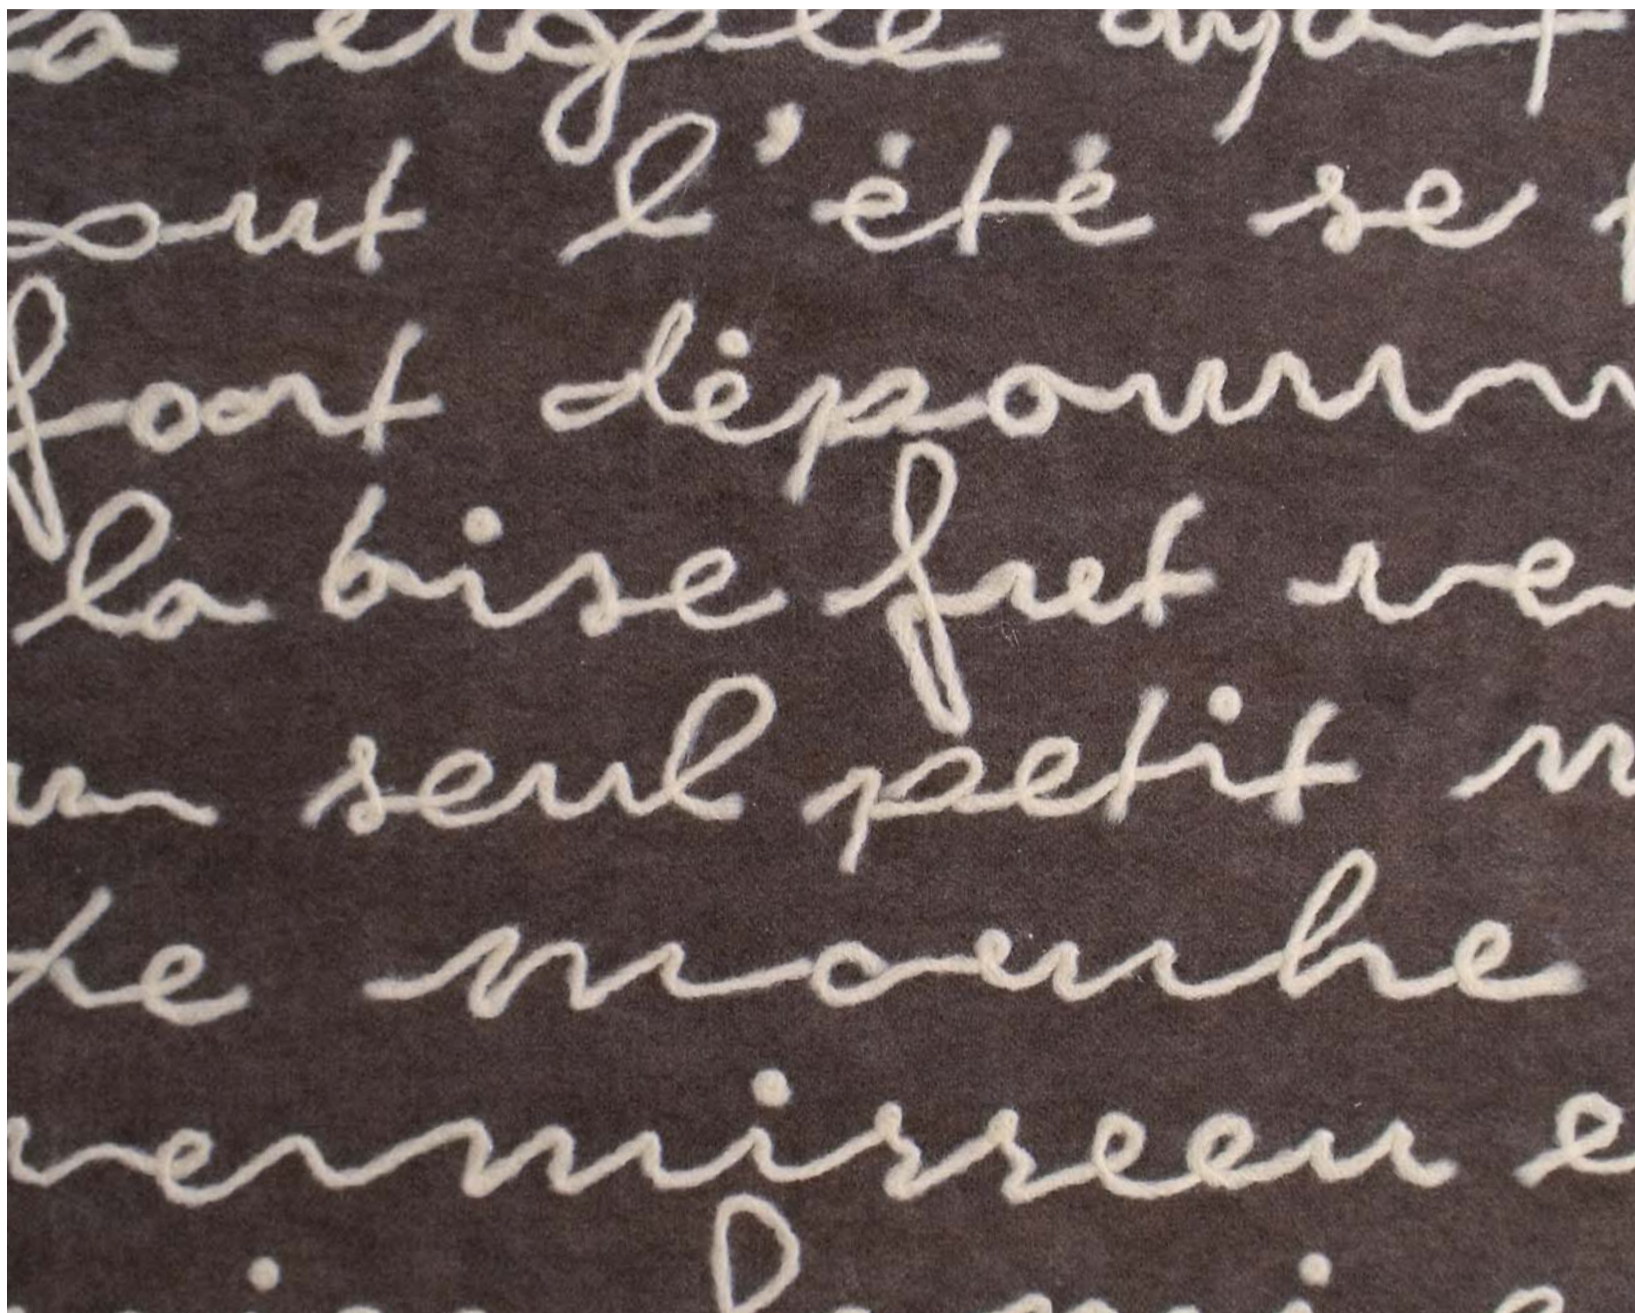 la cigale ayant
out l'été se
fort dépourvu
la bise fut ve
un seul petit m
de mouche
vermisseau e